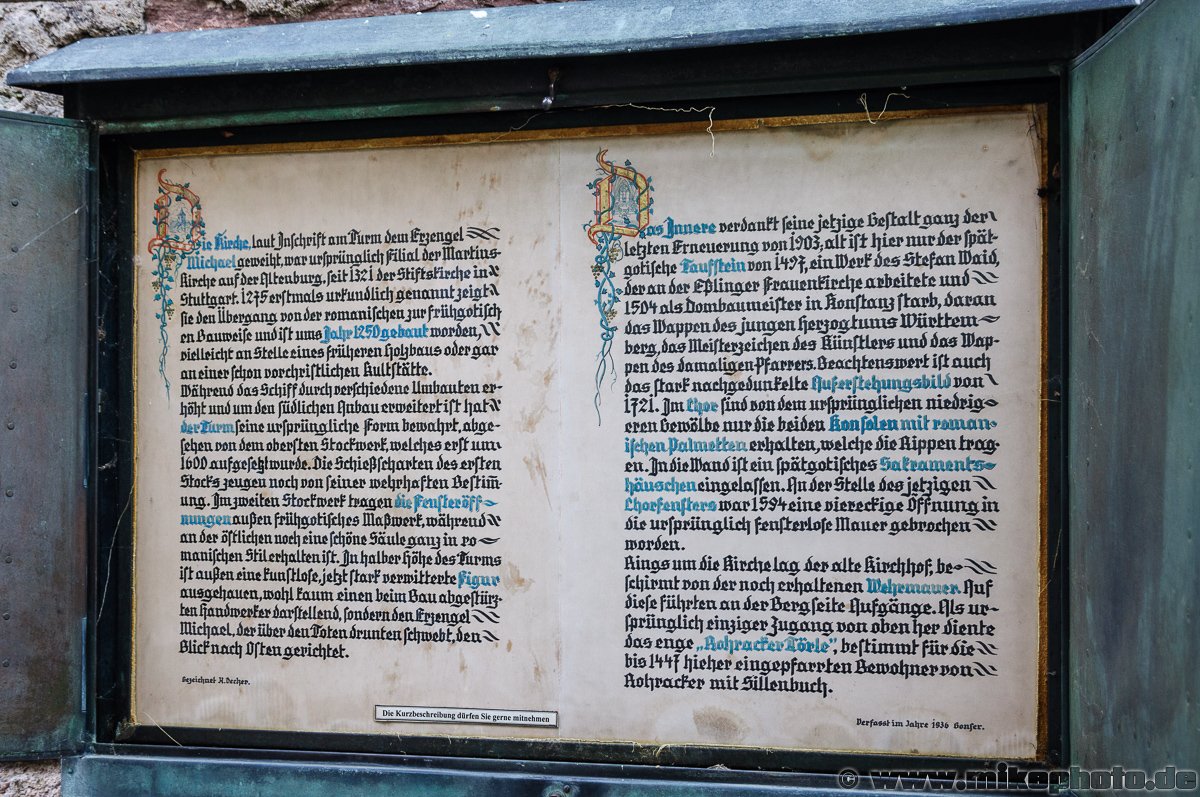 Die Kirche, laut Inschrift am Turm dem Erzengel
Michael geweiht, war ursprünglich Filial der Martins-
kirche auf der Altenburg, seit 1321 der Stiftskirche in
Stuttgart. 1275 erstmals urkundlich genannt zeigt
sie den Übergang von der romanischen zur frühgotisch
en Bauweise und ist ums Jahr 1250 gebaut worden,
vielleicht an Stelle eines früheren Holzbaus oder gar
an einer schon vorchristlichen Kultstätte.
Während das Schiff durch verschiedene Umbauten er-
höht und um den südlichen Anbau erweitert ist hat
der Turm seine ursprüngliche Form bewahrt, abge-
sehen von dem obersten Stockwerk, welches erst um
1600 aufgesetzt wurde. Die Schießscharten des ersten
Stocks zeugen noch von seiner wehrhaften Bestim̄-
ung. Im zweiten Stockwerk tragen die Fensteröff-
nungen außen frühgotisches Maßwerk, während
an der östlichen noch eine schöne Säule ganz in ro-
manischen Stil erhalten ist. In halber Höhe des Turms
ist außen eine kunstlose, jetzt stark verwitterte Figur
ausgehauen, wohl kaum einen beim Bau abgestürz-
ten Handwerker darstellend, sondern den Erzengel
Michael, der über den Toten drunten schwebt, den
Blick nach Osten gerichtet.
Gezeichnet K. Decher.
Die Kurzbeschreibung dürfen Sie gerne mitnehmen
Das Innere verdankt seine jetzige Gestalt ganz der
letzten Erneuerung von 1903; alt ist hier nur der spät-
gotische Taufstein von 1497, ein Werk des Stefan Waid,
der an der Eßlinger Frauenkirche arbeitete und
1504 als Dombaumeister in Konstanz starb, daran
das Wappen des jungen Herzogtums Württem-
berg, das Meisterzeichen des Künstlers und das Wap-
pen des damaligen Pfarrers. Beachtenswert ist auch
das stark nachgedunkelte Auferstehungsbild von
1721. Im Chor sind von dem ursprünglichen niedrig-
eren Gewölbe nur die beiden Konsolen mit roman-
ischen Palmetten erhalten, welche die Rippen trag-
en. In die Wand ist ein spätgotisches Sakraments-
häuschen eingelassen. An der Stelle des jetzigen
Chorfensters war 1594 eine viereckige Öffnung in
die ursprünglich fensterlose Mauer gebrochen
worden.
Rings um die Kirche lag der alte Kirchhof, be-
schirmt von der noch erhaltenen Wehrmauer. Auf
diese führten an der Bergseite Aufgänge. Als ur-
sprünglich einziger Zugang von oben her diente
das enge „Rohracker Törle", bestimmt für die
bis 1447 hieher eingepfarrten Bewohner von
Rohracker mit Sillenbuch.
Verfasst im Jahre 1936 Gonser.
© www.mikephoto.de